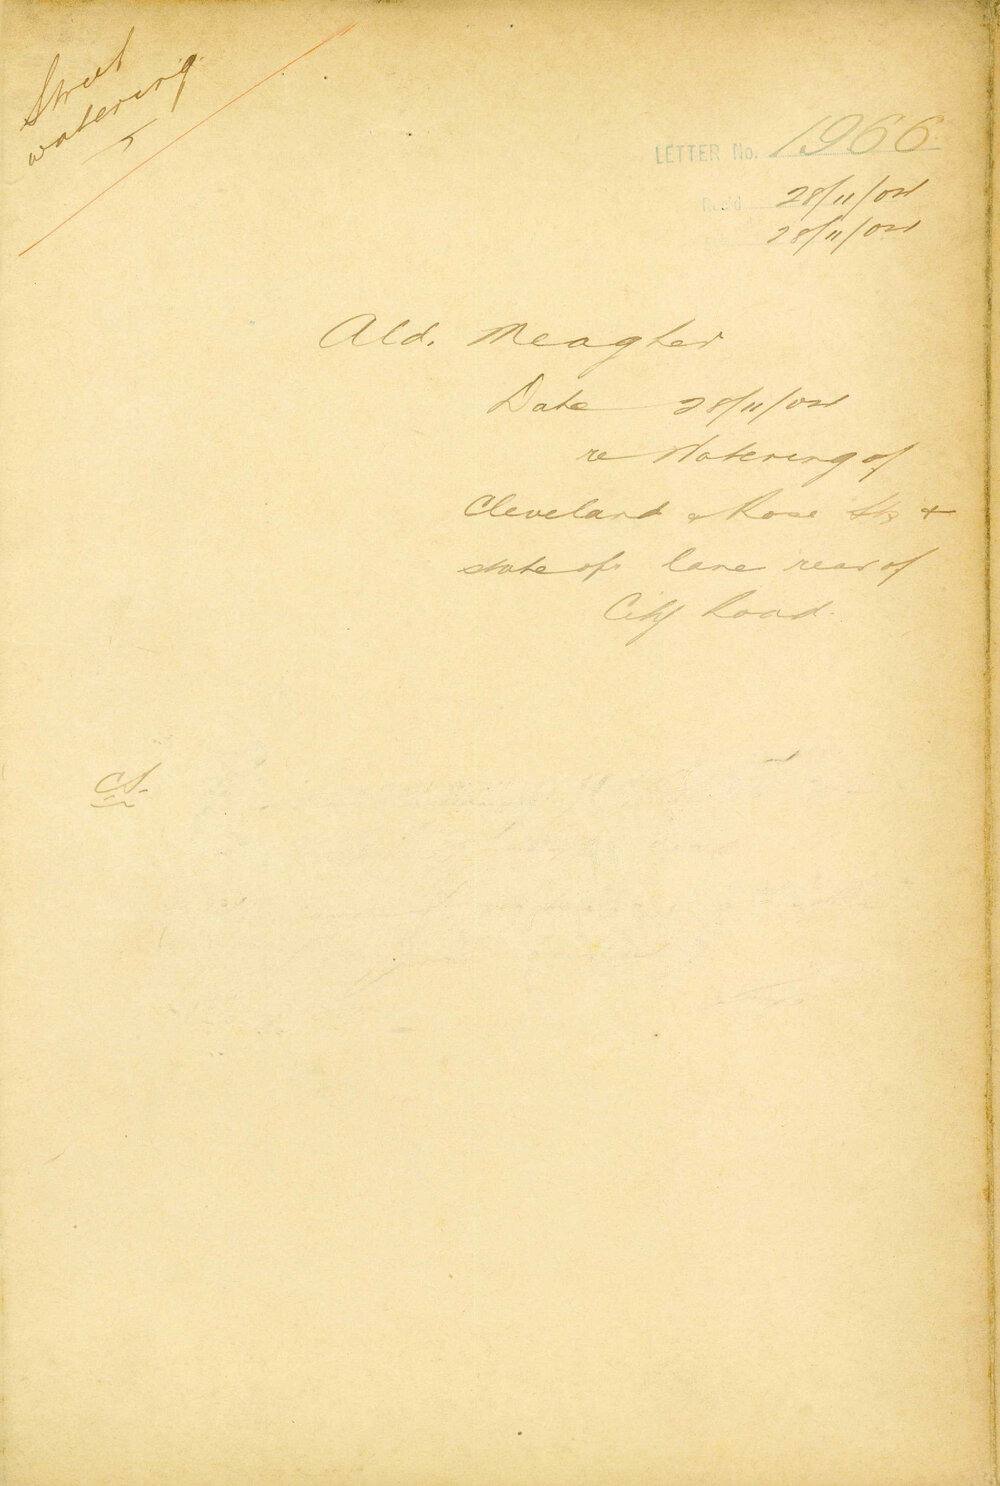 Street
watering
LETTER No. 1966
Rec'd 28/11/02
28/11/02
Ald. Meagher
Date 28/11/02
re Watering of
Cleveland & Rose Sts &
state of lane rear of
City Road.
CS.